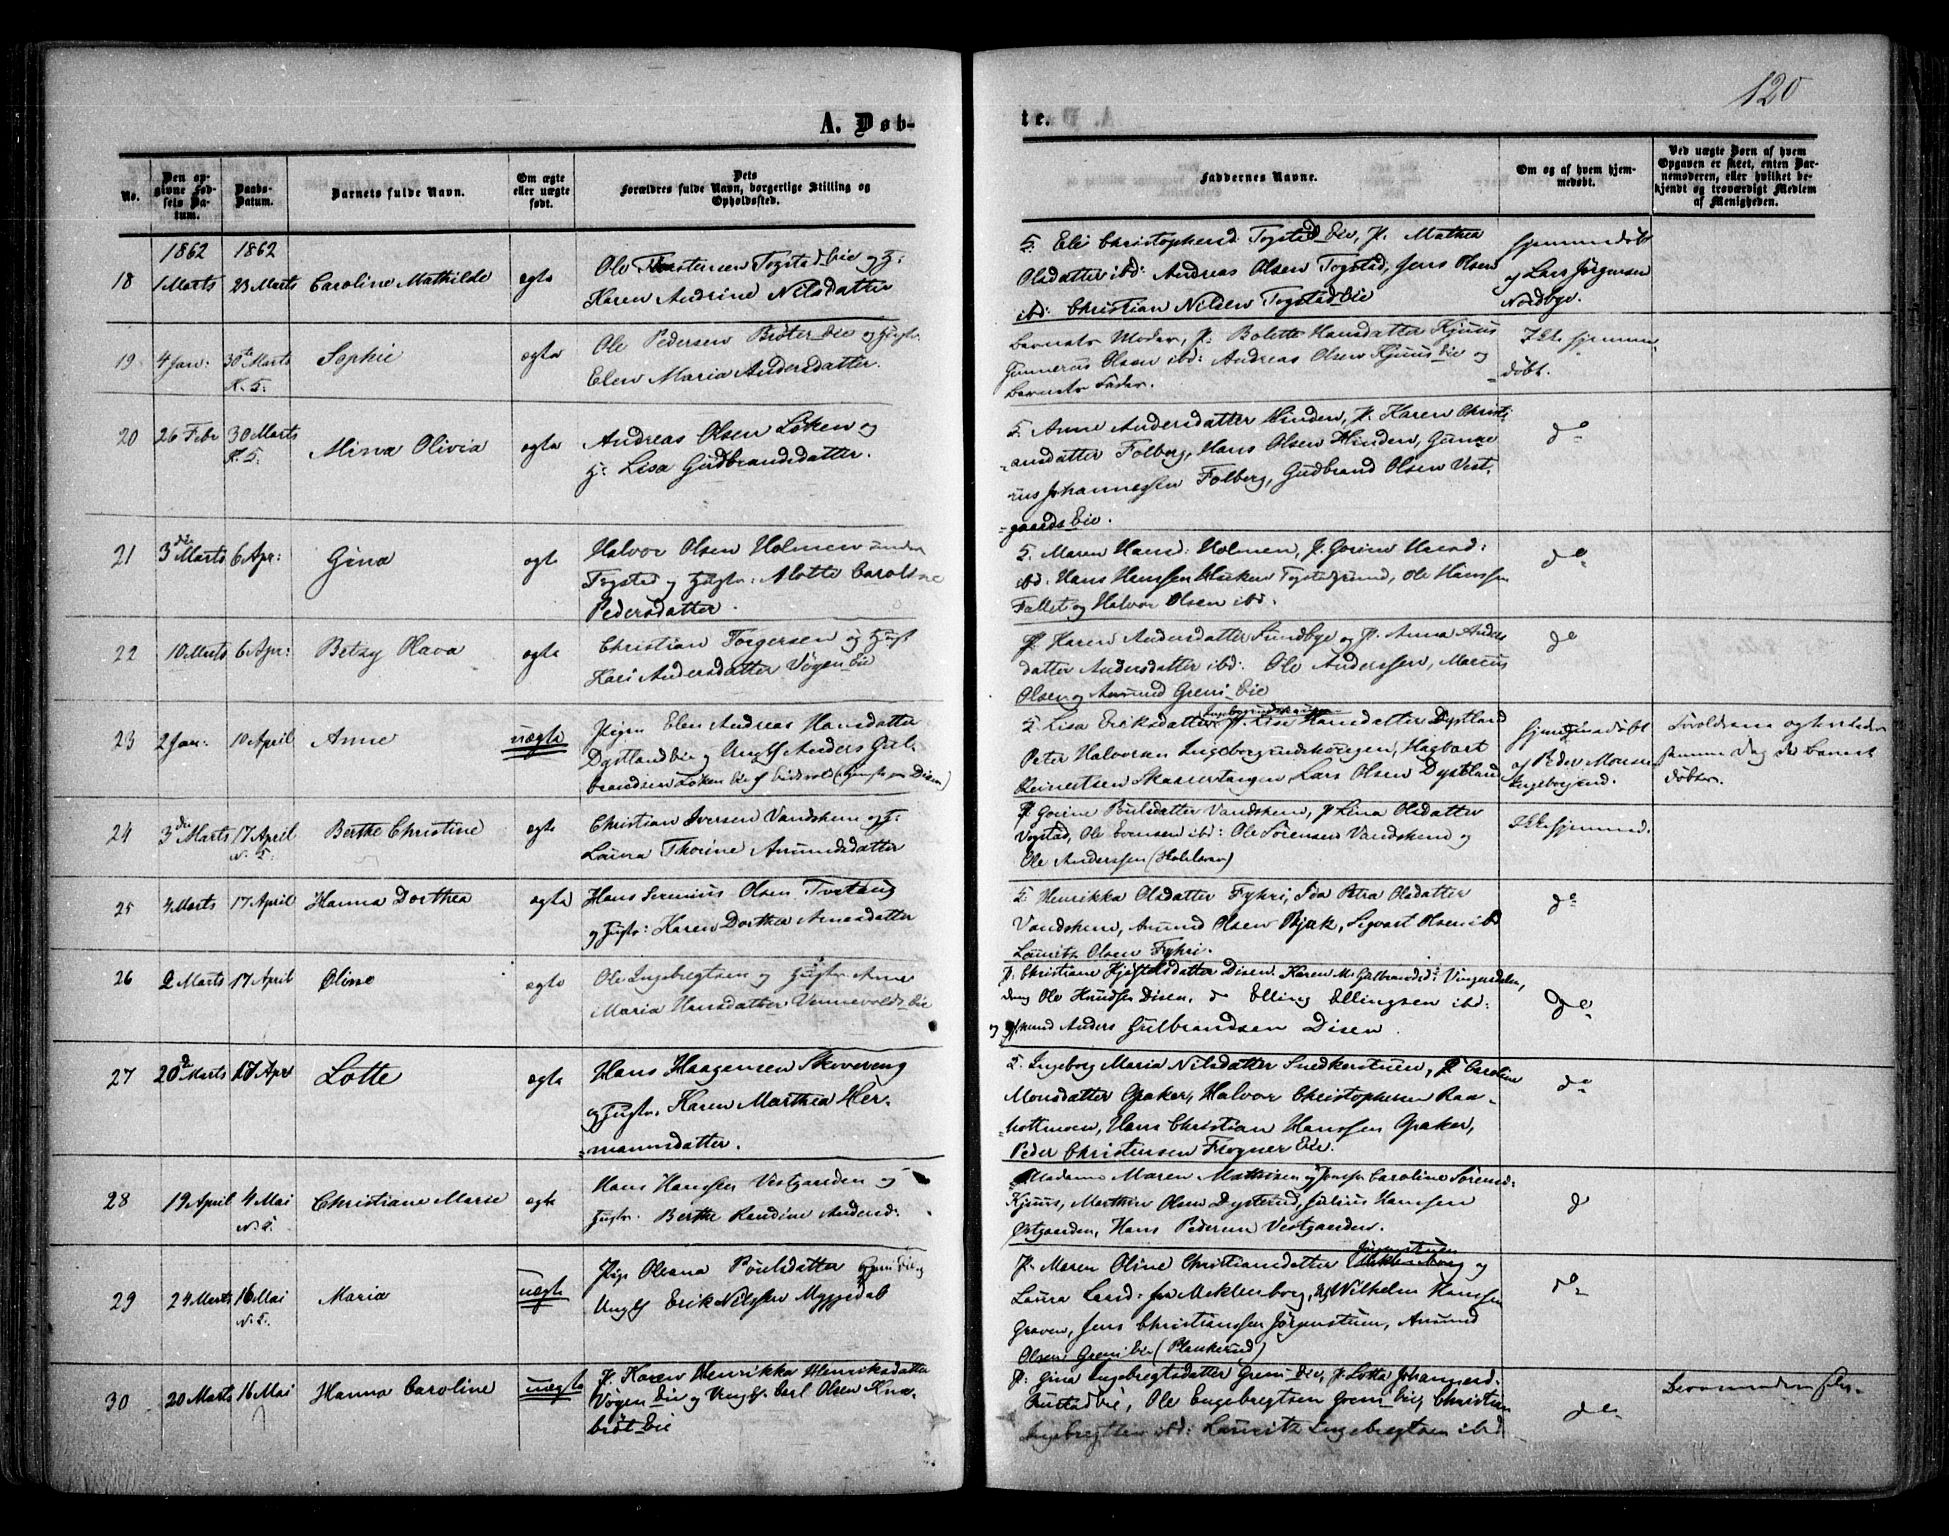 120
A. Døb-
te.
No.
Den opgivne Fødsels Datum.
Daabs-Datum.
Barnets fulde Navn.
Om ægte eller uægte født.
Dets Forældres fulde Navn, borgerlige Stilling og Opholdssted.
Faddernes Navne.
Om og af hvem hjemmedøbt.
Ved uægte Børn af hvem Opgaven er skeet, enten Barnemoderen, eller hvilket bekjendt og troværdigt Medlem af Menigheden.
1862 1862
18 1 Marts 23 Marts Caroline Mathilde ægte
Ole Torstensen Togstad Eie og H:
Karen Andrine Nilsdatter
Togstad Eie, P. Mathea
Olsdatter ibd: Andreas Olsen Togstad, Jens Olsen
ibd: Christian Nilsen Togstad Eie
Hjemmedøbt
og Lars Jörgensen
Nordbye.
19 4 Jan: 30te Marts Sophie ægte
N. S.
Ole Pedersen Bröter Eie og Hustr.
Elen Maria Andersdatter.
Barnets Moder, P. Bolette Hansdatter Kjuus
Gunnerus Olsen ibd: Andreas Olsen Kjuus Eie og
Barnets Fader.
Ikke hjemme-
døbt.
20 26 Febr 30 Marts Mina Olivia ægte
N. S.
Andreas Olsen Löken og
H: Lisa Gudbrandsdatter.
Anne Andersdatter Hinden, P. Karen Christi-
ansdatter Folberg, Hans Olsen Hinden, Gunne-
rus Johannessen Folberg, Gudbrand Olsen Vest-
gaards Eie.
do
21 3die Marts 6 Apr: Gina ægte
Halvor Olsen Holmen under
Togstad og Hustr: Lotte Caroline
Pedersdatter.
Maren Hansd: Holmen,
ibd: Hans Hanssen Togstad, Ole Hanssen
og Halvor Olsen ibd.
do
22 10 Marts 6 Apr: Betzy Olava ægte
Christian Torgersen og Hust
Kari Andersdatter Vögen Eie
P. Karen Andersdatter Sundbye og P. Anna Anders
datter ibd: Ole Anderssen, Marcus
Olsen og Amund Greni Eie
do
23 2 Jan: 10 April Anne uægte
Pigen Elen Andrea Hansdatter
Dystland Eie og Ungk Anders Gul-
brandsen Löken Eie af Eidsvold
Lisa Eriksdatter P. Lise Hansdatter Dystland
Peter Halvorsen Ingeborgrud, Hagbart
Reinertsen Skaanertangen, Lars Olsen Dystland
Hjemmedøbt
af Peder Monsen
Ingeborgrud.
samme Dag da Barnet
døbtes.
24 3die Marts 17 April Berthe Christine ægte
N. S.
Christian Iversen Vandskem og H.
Laura Thorine Amundsdatter
P. Gorine Pulsdatter Vandskem, P. Lina Olsdatter
Vogstad, Ole Evensen ibd: Ole Sörensen Vandskem og
Ole Anderssen
Ikke hjemmed.
25 4 Marts 17 April Hanna Dorthea ægte
Hans Serenius Olsen Tveteng
og Hustr: Karen Dorthea Arnesdatter
Henrikka Olsdatter Fykri, Ida Petra Olsdatter
Vandskem, Amund Olsen Bjak, Sigvart Olsen ibd
Lauritz Olsen Fykri.
do
26 2 Marts 17 April Oline ægte
Ole Ingebregtsen og Hustr. Anne
Maria Hansdatter Vennevolds Eie
P. Christiane Kjöstelsdatter Disen, Karen M. Gulbrandsd:
Ole Knudsen Disen, Elling Ellingsen ibd:
og Anders Gulbrandsen Disen.
do
27 20de Marts 17 Apr Lotte ægte
Hans Haagensen Skoveeng
og Hustr. Karen Marthea Her-
mannsdatter.
Ingeborg Maria Nilsdatter Snedkerstuen, P. Caroline
Monsdatter Opaker, Halvor Christophersen Raa-
hottmoen, Hans Christian Hanssen Opaker,
Peder Christensen Frogner Eie.
do
28 19 April 4 Mai Christiane Marie ægte
N. S.
Hans Hanssen Vestgaarden og
Hustr. Berthe Randine Andersd.
Madame Maren Mathisen og Jomfr. Caroline Sörensd.
Kjuus, Marthin Olsen Dystland, Julius Hanssen
Östgaarden, Hans Pedersen Vestgaarden.
do
29 24 Marts 16 Mai Maria uægte
N. S.
Pige Oleana Poulsdatter
Ungk Erik Nilssen Myggedal
P. Maren Oline Christiansdatter Jörgenstuen og
Laura Meklenborg, Wilhelm Hanssen
Graven, Jens Christianssen Jörgenstuen, Amund
Olsen Greni Eie (Plankerud)
do
30 20 Marts 16 Mai Hanna Caroline uægte
P. Karen Henrikka Henriksdatter
Vögen Eie og Ungk. Carl Olsen Kna-
bröt Eie
P. Gina Ingebregtsdatter Greni Eie, P. Lotta Johannesd.
Ole Engebregtsen Greni Eie, Christian
Ingebregtsen ibd: Lauritz Ingebregtsen ibd
do
Barnemoderen selv.